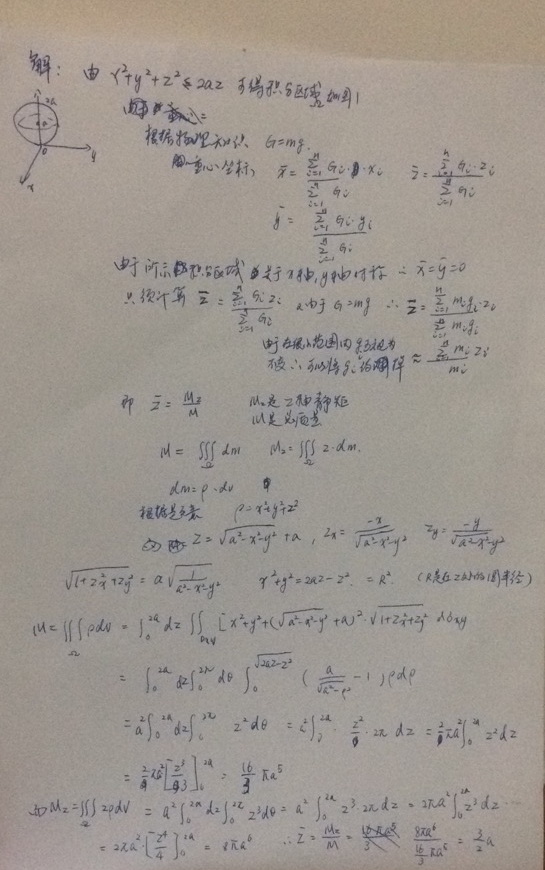 解: 由 x²+y²+z² ≤ 2az 可得积分区域 如图1
2a
a
0
y
x
根据物理知识 G=mg.
重心坐标, x̄ = Σ(i=1→n) Gi·xi / Σ(i=1→n) Gi z̄ = Σ(i=1→n) Gi·zi / Σ(i=1→n) Gi
ȳ = Σ(i=1→n) Gi·yi / Σ(i=1→n) Gi
由于所示积分区域 关于x轴,y轴对称 ∴ x̄=ȳ=0
只须计算 z̄ = Σ(i=1→n) Gi zi / Σ(i=1→n) Gi 由于 G=mg ∴ z̄ = Σ(i=1→n) migi·zi / Σ(i=1→n) migi
由于在 范围内 视为
不变 ∴ 可以将gi ≈ Σ(i=1→n) mi zi / mi
即 z̄ = Mz/M Mz是z轴静矩
M是总质量
M = ∭Ω dm Mz = ∭Ω z·dm.
dm=ρ·dv
根据题意 ρ=x²+y²+z²
Z = √(a²-x²-y²) + a , Zx = -x/√(a²-x²-y²) Zy = -y/√(a²-x²-y²)
√(1+Zx²+Zy²) = a√(1/(a²-x²-y²)) x²+y²=2az-z². =R². (R是在z 的圆半径)
M = ∭Ω ρdv = ∫₀²ᵃ dz ∬Dxy [x²+y²+(√(a²-x²-y²)+a)²·√(1+Zx²+Zy²) dσxy
= ∫₀²ᵃ dz ∫₀^2π dθ ∫₀^√(2az-z²) (a/√(a²-ρ²) -1) ρdρ
= a² ∫₀²ᵃ dz ∫₀^2π z² dθ = a² ∫₀²ᵃ · z²·2π dz = 2πa² ∫₀²ᵃ z² dz
= 2πa² [z³/3]₀²ᵃ = 16/3 πa⁵
而 Mz = ∭Ω zρdv = a² ∫₀²ᵃ dz ∫₀^2π z³dθ = a² ∫₀²ᵃ z³·2π dz = 2πa² ∫₀²ᵃ z³ dz
= 2πa²·[z⁴/4]₀²ᵃ = 8πa⁶ ∴ z̄ = Mz/M = 8πa⁶ / (16/3 πa⁵) = 3/2 a